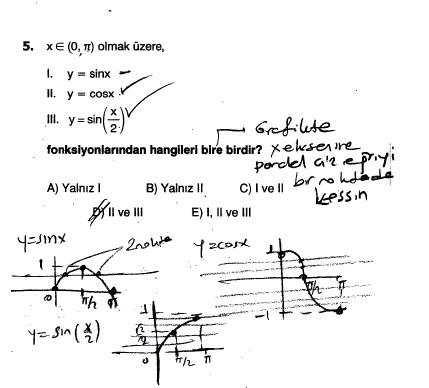 5. x ∈ (0, π) olmak üzere,
I. y = sinx –
II. y = cosx ✓
III. y = sin(x/2) ✓
Grafikte
fonksiyonlarından hangileri bire birdir? x eksenine
paralel çiz eğriyi
bir noktada
kessin
A) Yalnız I B) Yalnız II C) I ve II
D) II ve III E) I, II ve III
y=sinx 2 nokta y=cosx
1 1
0 π/2 π π/2 π
-1
y = sin(x/2) 1
√2/2
0 π/2 π